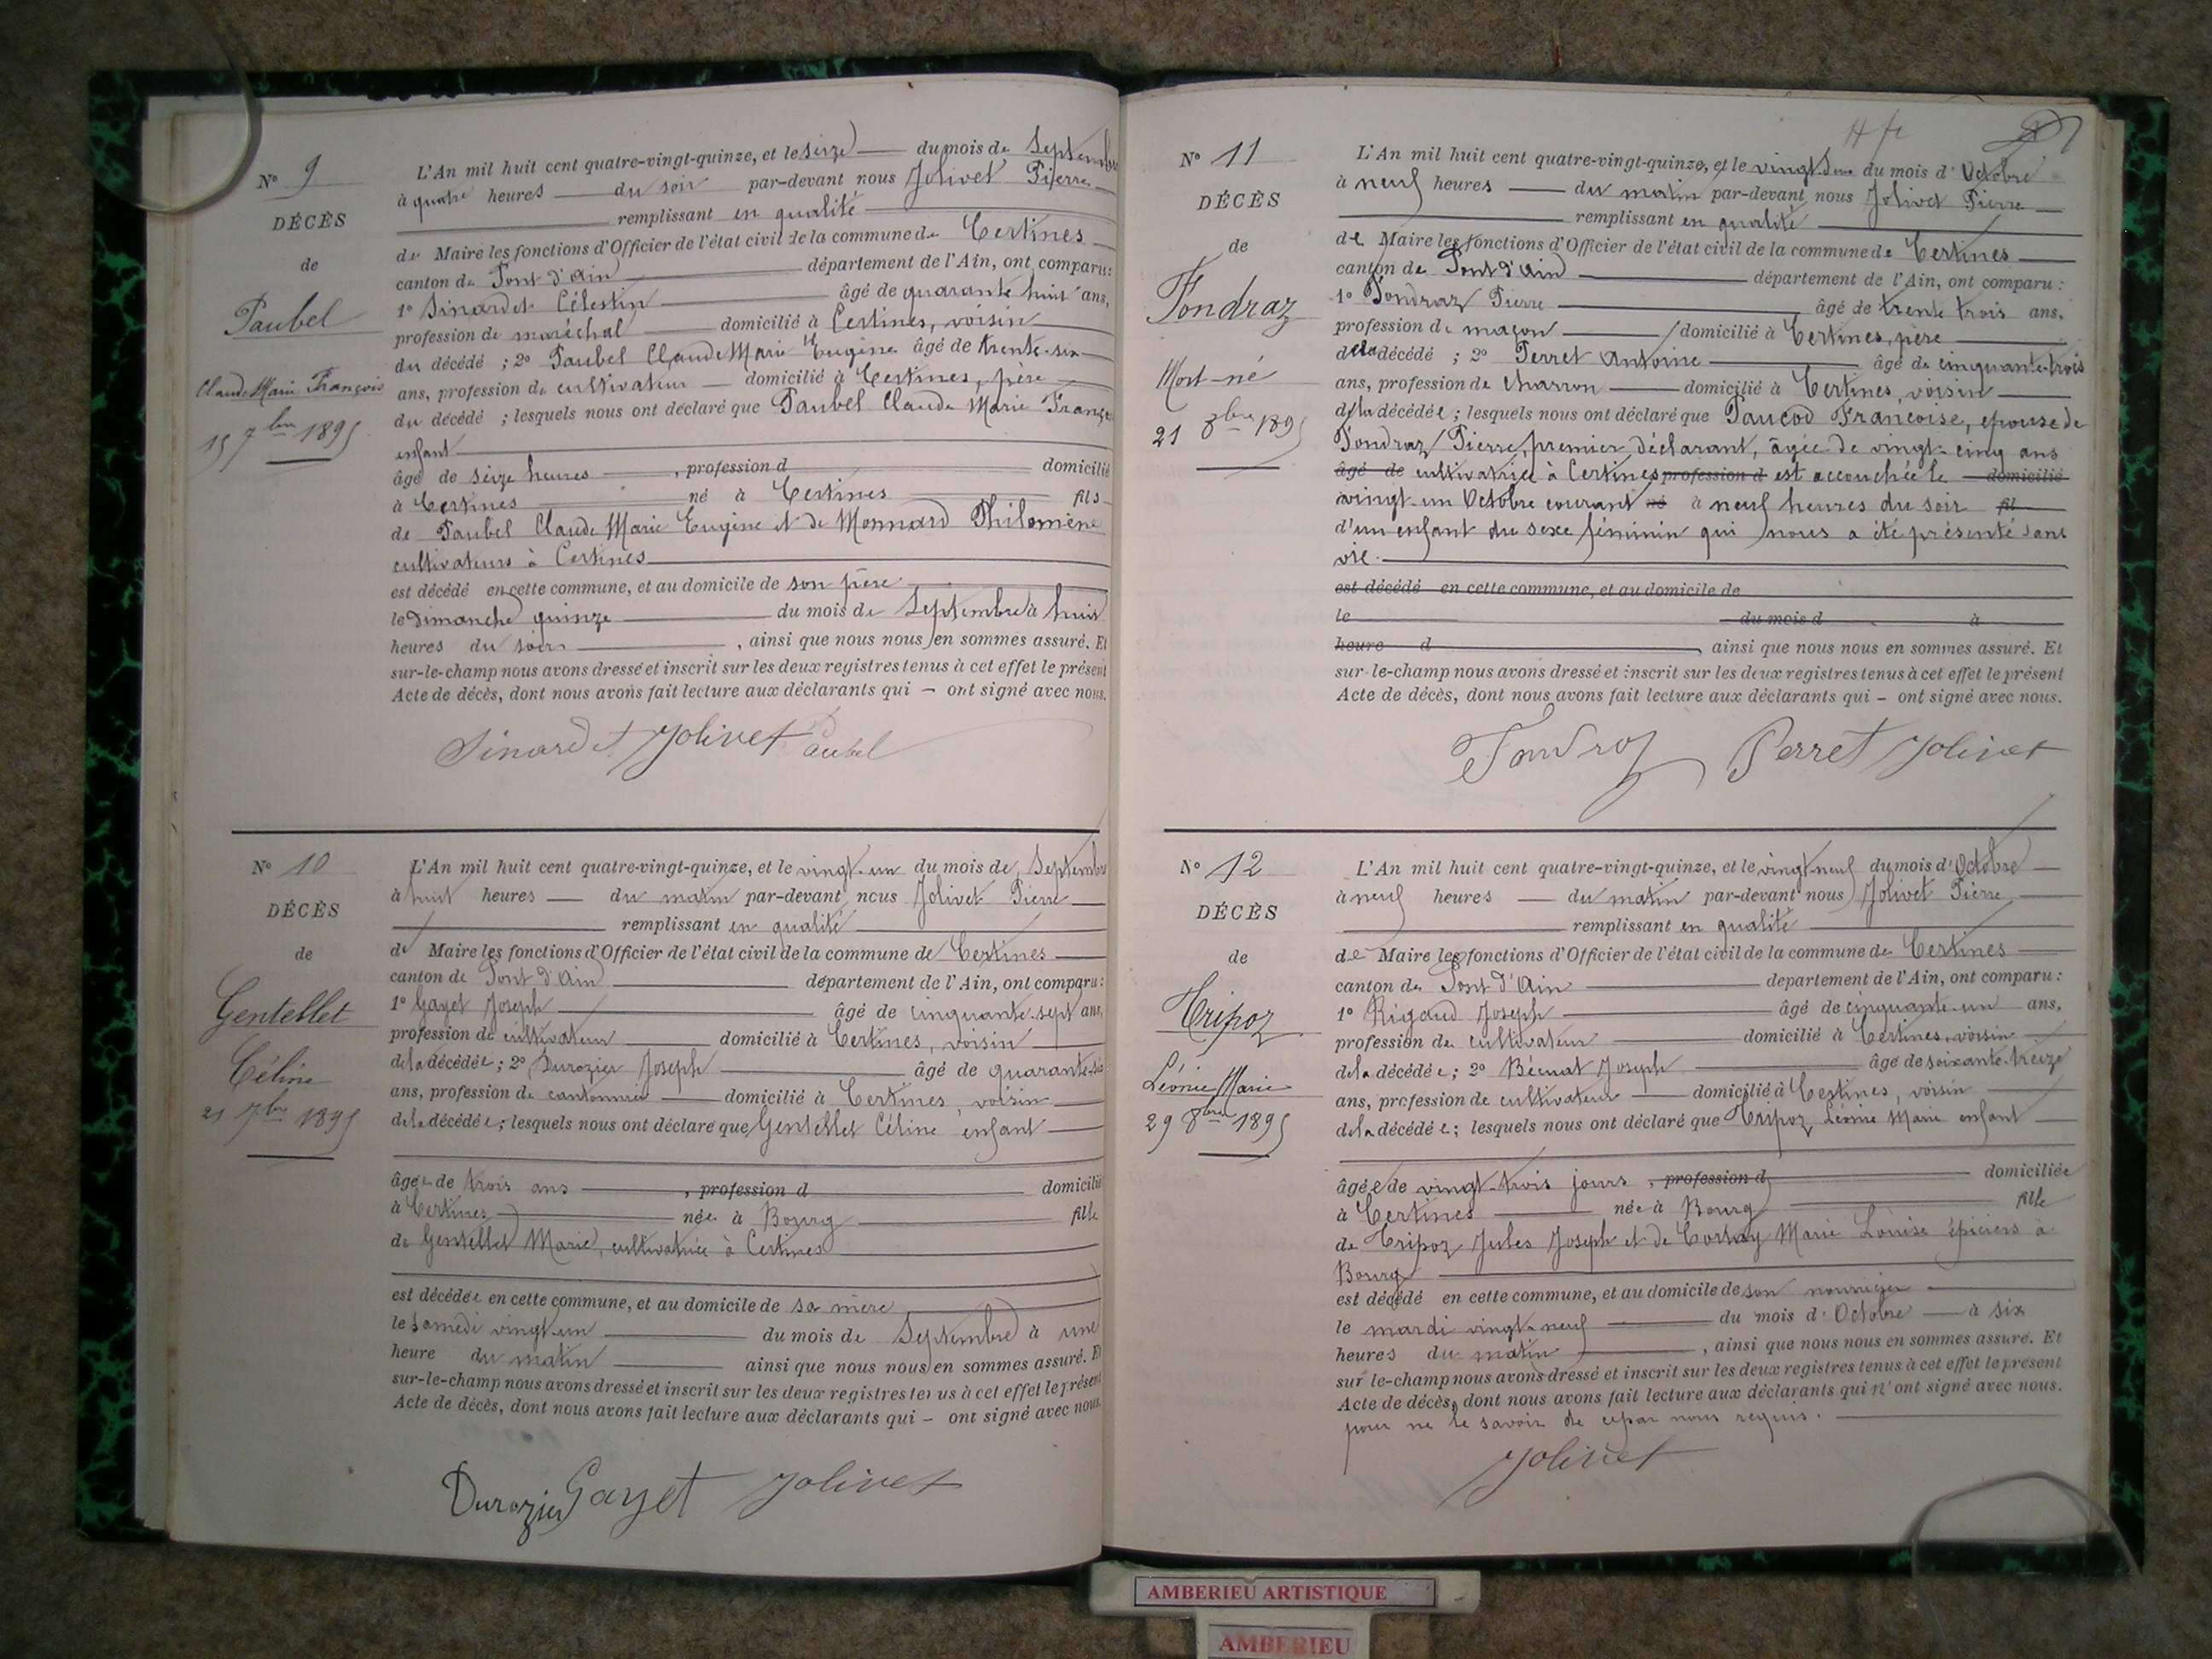 N° 9
DÉCÈS
de
Paubel
Claude Marie François
15 7bre 1895
L'An mil huit cent quatre-vingt-quinze, et le seize du mois de Septembre
à quatre heures du soir par-devant nous Jolivet Pierre
remplissant en qualité
de Maire les fonctions d'Officier de l'état civil de la commune de Certines
canton de Pont d'Ain département de l'Ain, ont comparu:
1° Sinardet Célestin âgé de quarante huit ans,
profession de maréchal domicilié à Certines, voisin
du décédé ; 2° Paubel Claude Marie Eugène âgé de trente-six
ans, profession de cultivateur domicilié à Certines, père
du décédé ; lesquels nous ont déclaré que Paubel Claude Marie Françs
enfant
âgé de seize heures , profession d domicilié
à Certines né à Certines fils
de Paubel Claude Marie Eugène et de Monnard Philomène
cultivateurs à Certines
est décédé en cette commune, et au domicile de son père
le Dimanche quinze du mois de Septembre à huit
heures du soir , ainsi que nous nous en sommes assuré. Et
sur-le-champ nous avons dressé et inscrit sur les deux registres tenus à cet effet le présent
Acte de décès, dont nous avons fait lecture aux déclarants qui – ont signé avec nous.
Sinardet Jolivet Paubel
N° 10
DÉCÈS
de
Gentellet
Céline
21 7bre 1895
L'An mil huit cent quatre-vingt-quinze, et le vingt-un du mois de Septembre
à huit heures du matin par-devant nous Jolivet Pierre
remplissant en qualité
de Maire les fonctions d'Officier de l'état civil de la commune de Certines
canton de Pont d'Ain département de l'Ain, ont comparu:
1° Gayet Joseph âgé de cinquante-sept ans,
profession de cultivateur domicilié à Certines, voisin
de la décédée ; 2° Durozier Joseph âgé de quarante-six
ans, profession de cantonnier domicilié à Certines, voisin
de la décédée ; lesquels nous ont déclaré que Gentellet Céline enfant
âgée de trois ans , profession d domicilié
à Certines née à Bourg fille
de Gentellet Marie, cultivatrice à Certines
est décédée en cette commune, et au domicile de sa mère
le samedi vingt-un du mois de Septembre à une
heure du matin ainsi que nous nous en sommes assuré. Et
sur-le-champ nous avons dressé et inscrit sur les deux registres tenus à cet effet le présent
Acte de décès, dont nous avons fait lecture aux déclarants qui – ont signé avec nous.
Durozier Gayet Jolivet
N° 11
DÉCÈS
de
Fondraz
Mort-né
21 8bre 1895
L'An mil huit cent quatre-vingt-quinze, et le vingt-deux du mois d'Octobre
à neuf heures du matin par-devant nous Jolivet Pierre
remplissant en qualité
de Maire les fonctions d'Officier de l'état civil de la commune de Certines
canton de Pont d'Ain département de l'Ain, ont comparu :
1° Fondraz Pierre âgé de trente trois ans,
profession de maçon domicilié à Certines, père
de la décédé ; 2° Perret Antoine âgé de cinquante-trois
ans, profession de charron domicilié à Certines, voisin
de la décédée ; lesquels nous ont déclaré que Paucod Françoise, épouse de
Fondraz Pierre, premier déclarant, âgée de vingt-cinq ans
âgé de cultivatrice à Certines profession d est accouchée le domicilié
vingt-un Octobre courant né à neuf heures du soir fil
d'un enfant du sexe féminin qui nous a été présenté sans
vie.
est décédé en cette commune, et au domicile de
le du mois d à
heure d , ainsi que nous nous en sommes assuré. Et
sur-le-champ nous avons dressé et inscrit sur les deux registres tenus à cet effet le présent
Acte de décès, dont nous avons fait lecture aux déclarants qui – ont signé avec nous.
Fondraz Perret Jolivet
N° 12
DÉCÈS
de
Tripoz
Léonie Marie
29 8bre 1895
L'An mil huit cent quatre-vingt-quinze, et le vingt-neuf du mois d'Octobre
à neuf heures du matin par-devant nous Jolivet Pierre
remplissant en qualité
de Maire les fonctions d'Officier de l'état civil de la commune de Certines
canton de Pont d'Ain département de l'Ain, ont comparu :
1° Rigaud Joseph âgé de cinquante-un ans,
profession de cultivateur domicilié à Certines, voisin
de la décédée ; 2° Béruat Joseph âgé de soixante-treize
ans, profession de cultivateur domicilié à Certines, voisin
de la décédée ; lesquels nous ont déclaré que Tripoz Léonie Marie enfant
âgée de vingt-trois jours , profession d domiciliée
à Certines née à Bourg fille
de Tripoz Jules Joseph et de Marie Louise épiciers à
Bourg
est décédé en cette commune, et au domicile de son nourricier
le mardi vingt-neuf du mois d'Octobre à six
heures du matin , ainsi que nous nous en sommes assuré. Et
sur le-champ nous avons dressé et inscrit sur les deux registres tenus à cet effet le présent
Acte de décès, dont nous avons fait lecture aux déclarants qui n'ont signé avec nous.
pour ne le savoir de ce par nous requis.
Jolivet
AMBERIEU ARTISTIQUE
AMBERIEU